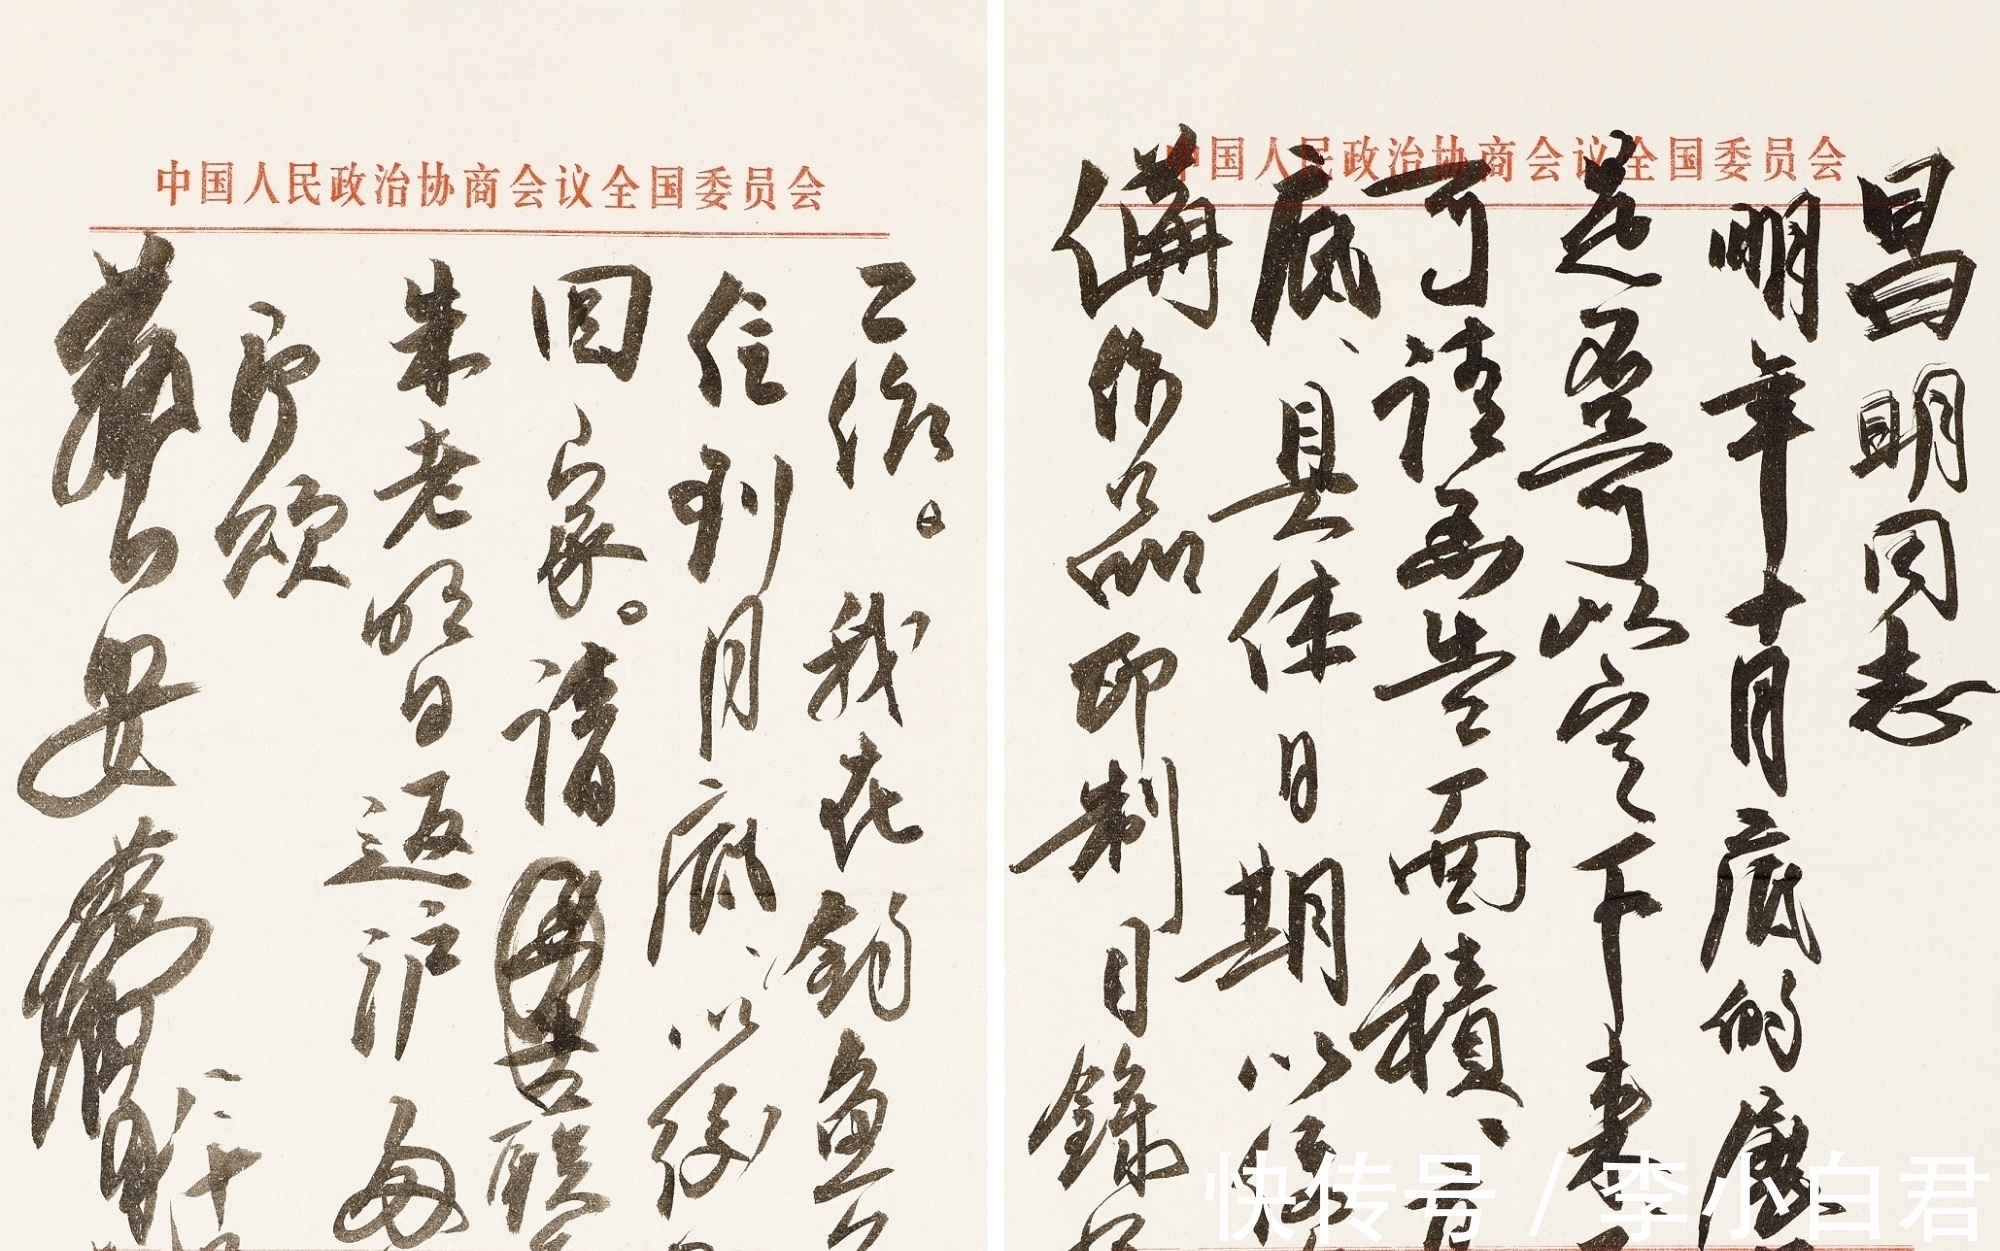 中国人民政治协商会议全国委员会
昌明同志
明年十月底的展
是否可以定下来
可请函告面积、
底、具体日期以便
備作品印制目錄
中国人民政治协商会议全国委员会
工作。我在钓鱼
住到月底、以後
回家。請 告联
朱老明日返沪
即颂
藝安
二十
快传号 / 李小白君